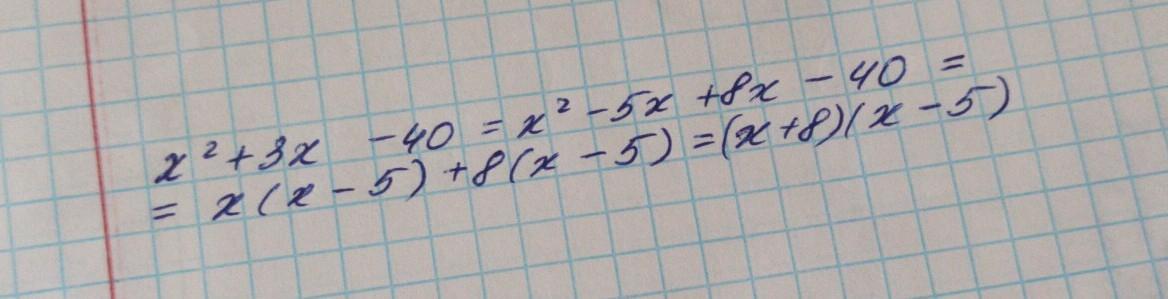 x² + 3x - 40 = x² - 5x + 8x - 40 =
= x(x - 5) + 8(x - 5) = (x + 8)(x - 5)